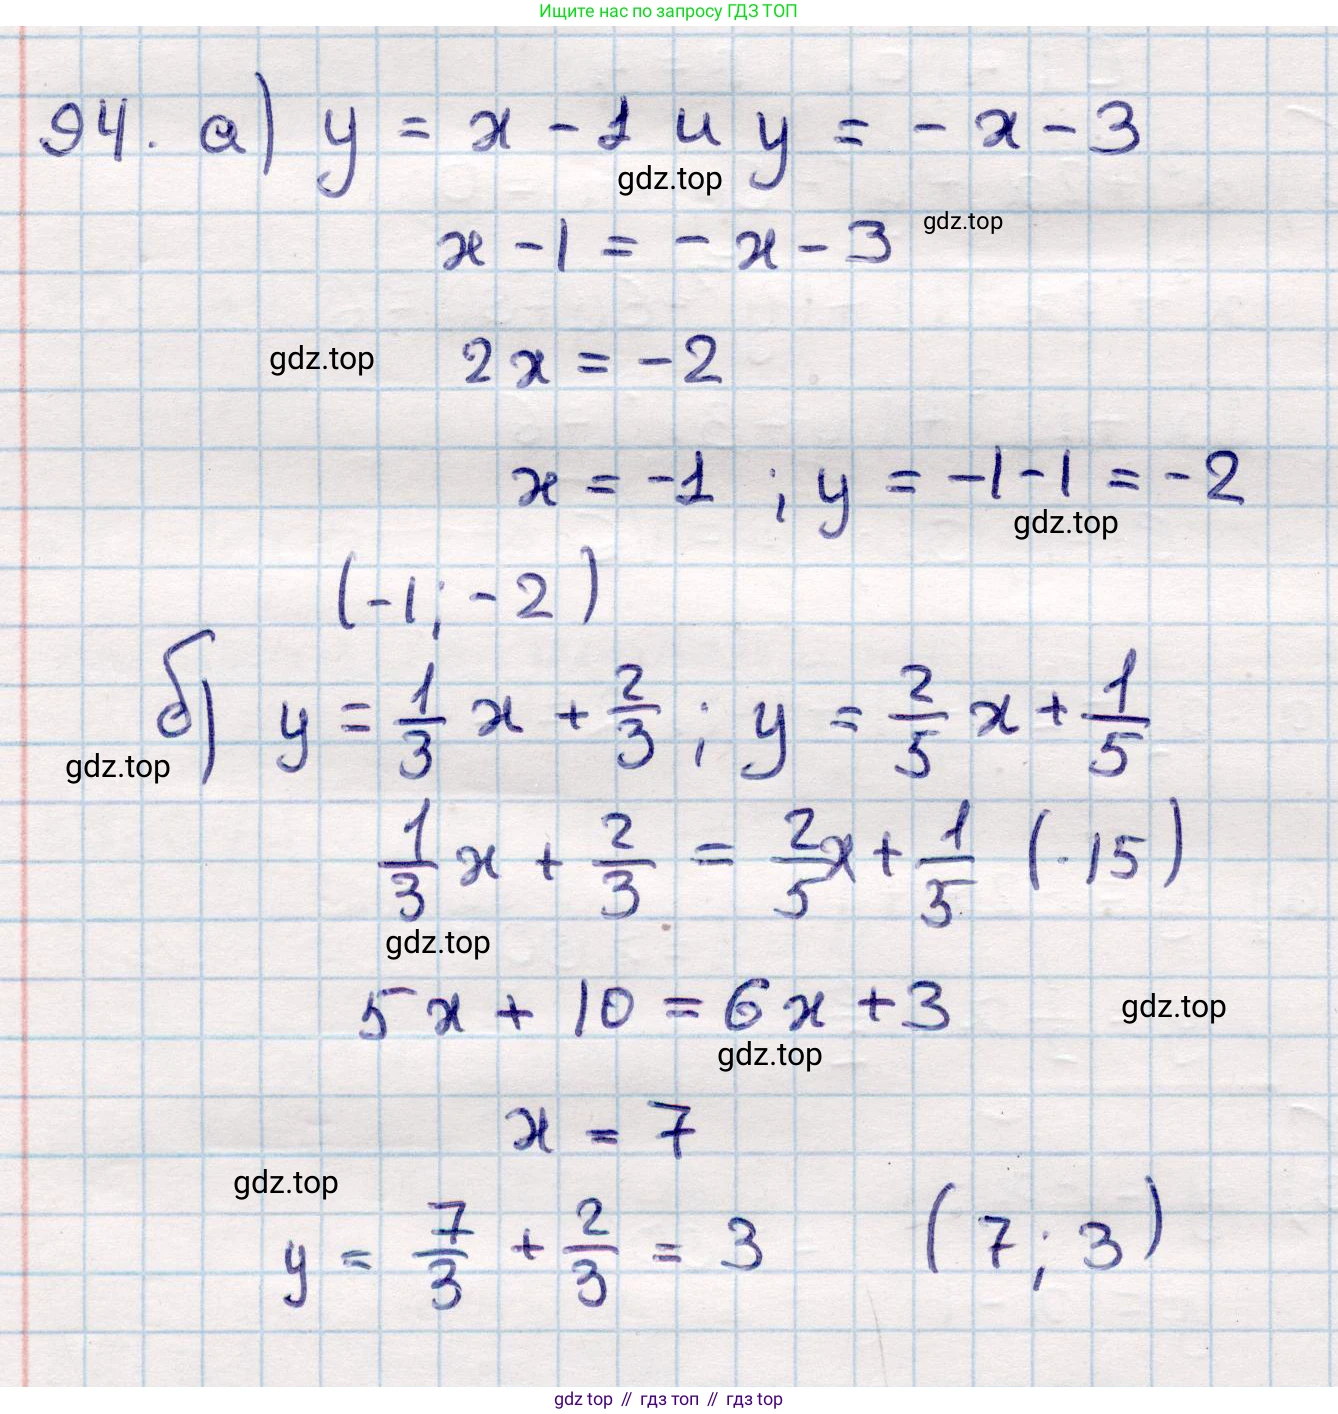 Ищите нас по запросу ГДЗ ТОП
94. а) y = x - 1 и y = - x - 3
gdz.top
x - 1 = - x - 3
gdz.top
gdz.top
2x = -2
x = -1 ; y = -1 - 1 = -2
gdz.top
(-1; -2)
б) y = 1/3 x + 2/3 ; y = 2/5 x + 1/5
gdz.top
1/3 x + 2/3 = 2/5 x + 1/5 (·15)
gdz.top
5x + 10 = 6x + 3
gdz.top
gdz.top
x = 7
gdz.top
y = 7/3 + 2/3 = 3 (7; 3)
gdz top // гдз топ // гдз top